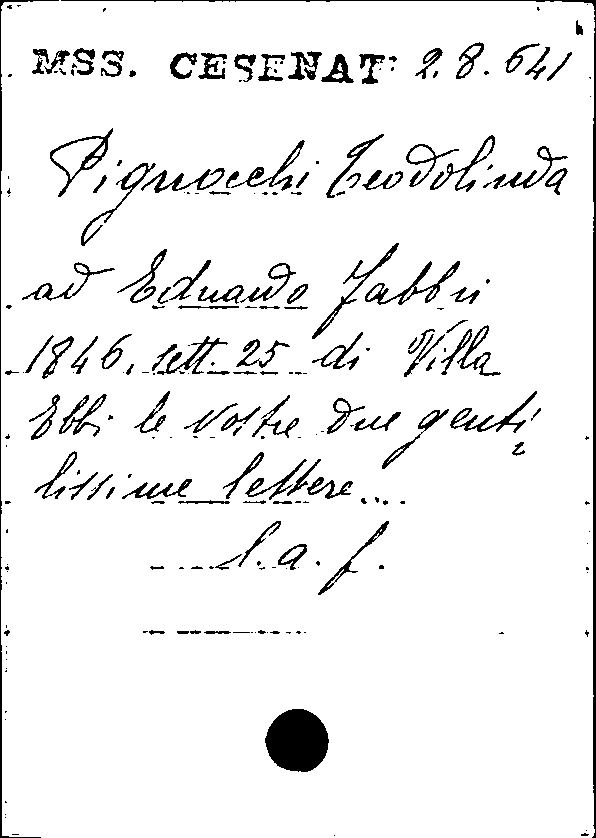 MSS. CESENAT. 2.8.641
Pignocchi Teodolinda
ad Eduardo Fabbri
1846, sett. 25 di Villa
Ebbi le vostre due genti=
lissime lettere...
l. a. f.